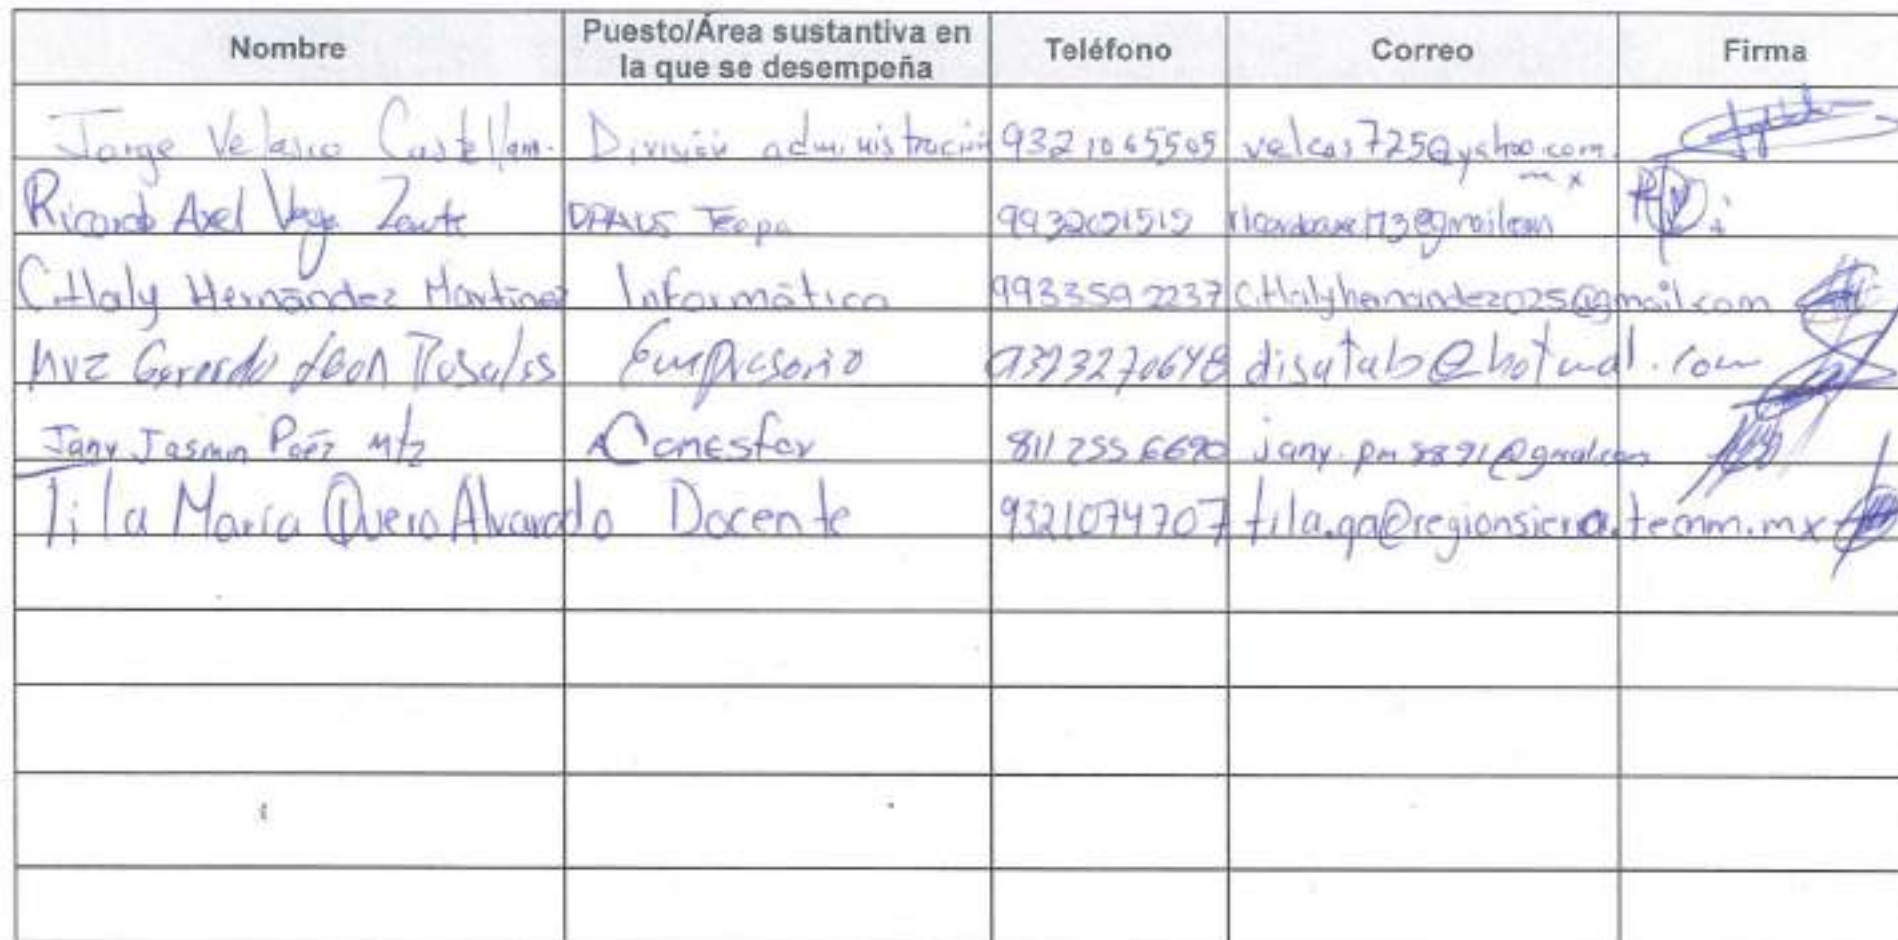 Nombre Puesto/Área sustantiva en la que se desempeña Teléfono Correo Firma
Jorge Velasco Castellan. División administración 9321065505 velcas725@yahoo.com.mx
Ricardo Axel Vega DPAIUS Teapa 993 ricardoaxel173@gmail.com
Citlaly Hernández Martínez Informática 9933592237 Citlalyhernandez025@gmail.com
MVZ Gerardo León Rosales Empresario disatab@hotmail.com
Jany Jasmin Paéz Mtz Canesfor 811 255 6690 jany.pm8891@gmail.com
Tila María Quero Alvarado Docente 9321074707 tila.qa@regionsierra.tecnm.mx